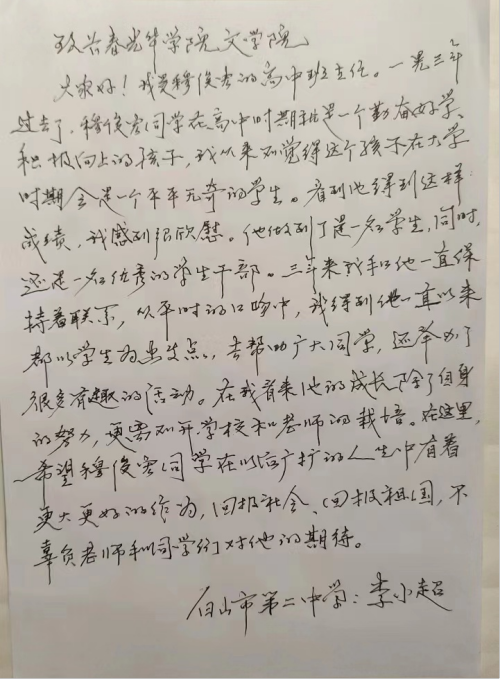 致长春光华学院文学院
大家好！我是穆俊宏的高中班主任。一晃三年
过去了，穆俊宏同学在高中时期就是一个勤奋好学、
积极向上的孩子，我从来不觉得这个孩子在大学
时期会是一个平平无奇的学生。看到他得到这样
成绩，我感到很欣慰。他做到了是一名学生，同时，
还是一名优秀的学生干部。三年来我和他一直保
持着联系，从平时的口吻中，我得到他一直以来
都以学生为出发点，去帮助广大同学，还举办了
很多有趣的活动。在我看来他的成长除了自身
的努力，更离不开学校和老师的栽培。在这里，
希望穆俊宏同学在以后广扩的人生中有着
更大更好的作为，回报社会、回报祖国，不
辜负老师和同学们对他的期待。
白山市第二中学：李小超